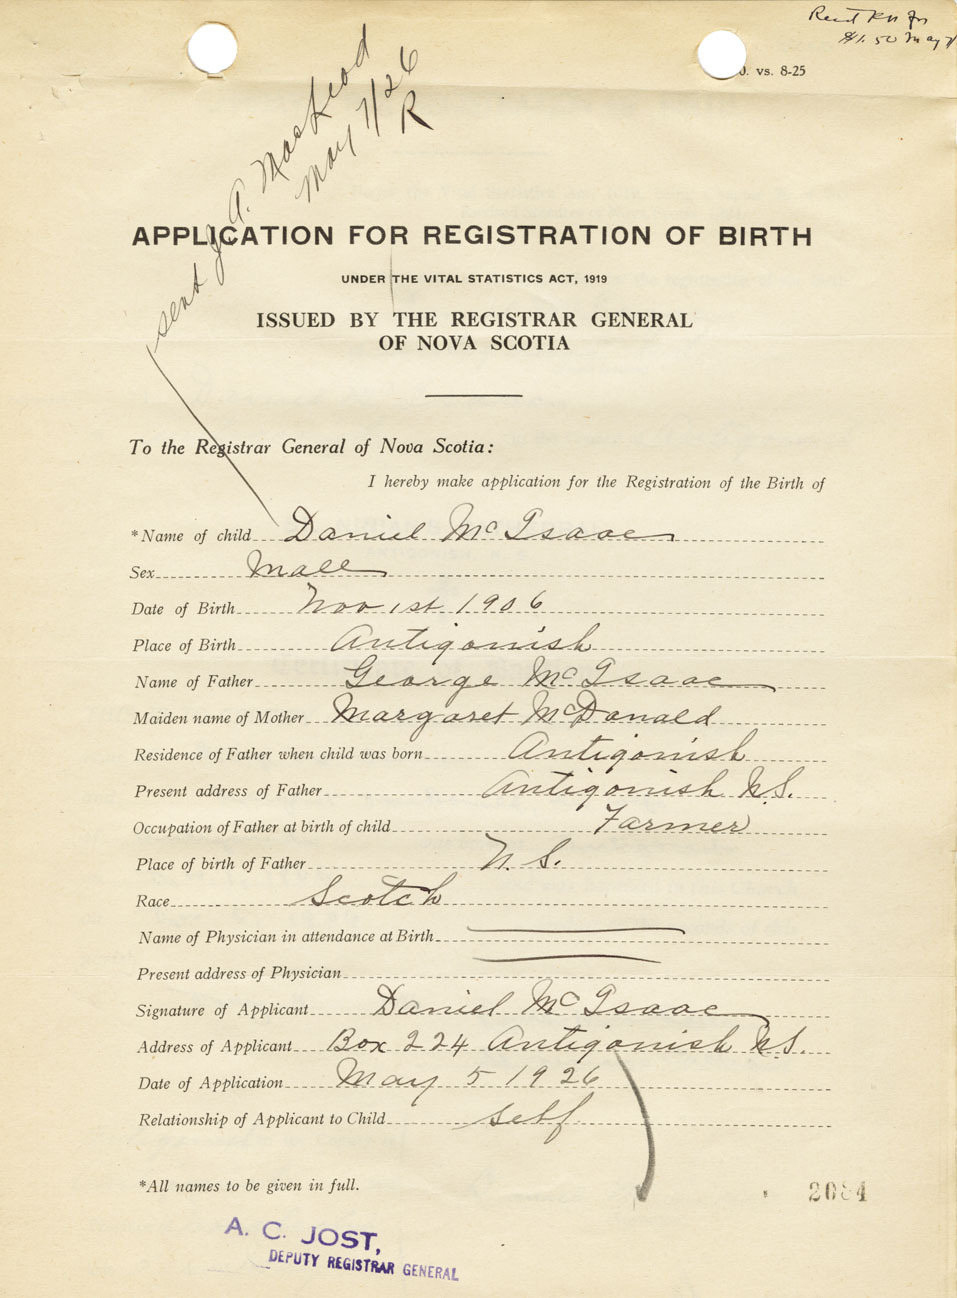 Recd
$1.50 May 7
vs. 8-25
sent J A. MacLeod
May 7/26
R
APPLICATION FOR REGISTRATION OF BIRTH
UNDER THE VITAL STATISTICS ACT, 1919
ISSUED BY THE REGISTRAR GENERAL
OF NOVA SCOTIA
To the Registrar General of Nova Scotia:
I hereby make application for the Registration of the Birth of
*Name of child Daniel McIsaac
Sex Male
Date of Birth Nov 1st 1906
Place of Birth Antigonish
Name of Father George McIsaac
Maiden name of Mother Margaret McDonald
Residence of Father when child was born Antigonish
Present address of Father Antigonish N.S.
Occupation of Father at birth of child Farmer
Place of birth of Father N.S.
Race Scotch
Name of Physician in attendance at Birth
Present address of Physician
Signature of Applicant Daniel McIsaac
Address of Applicant Box 224 Antigonish N.S.
Date of Application May 5 1926
Relationship of Applicant to Child self
*All names to be given in full.
2084
A. C. JOST,
DEPUTY REGISTRAR GENERAL